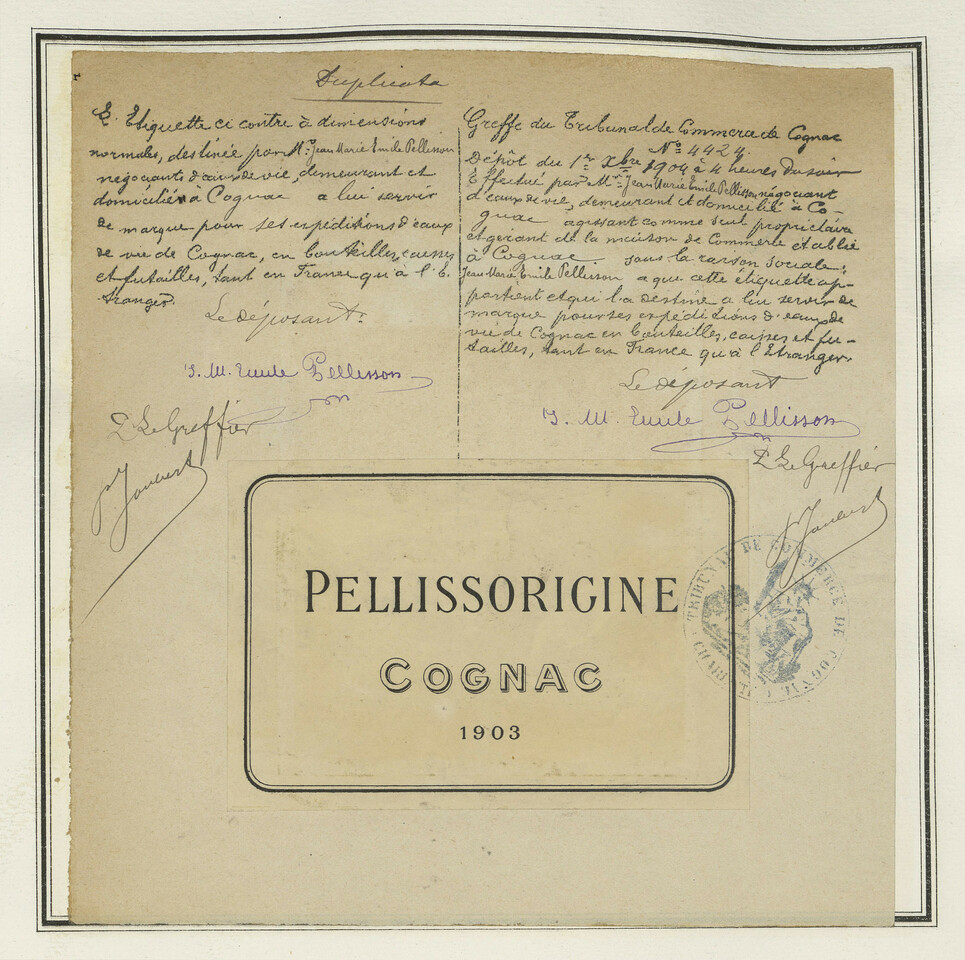 Duplicata
Etiquette ci contre à dimensions
normales, destinée par Mr. Jean Marie Emile Pellisson
négociants d'eaux de vie, demeurant et
domicilié à Cognac a lui servir
de marque pour ses expéditions d'eaux
de vie de Cognac, en bouteilles, caisses
et futailles, tant en France qu'à l'E
tranger.
Le déposant
J. M. Emile Pellisson
Le Greffier
Greffe du Tribunal de Commerce de Cognac
No 4424.
Dépôt du 1er Xbre 1904 à 4 heures du soir
Effectué par Mr. Jean Marie Emile Pellisson négociant
d'eaux de vie, demeurant et domicilié à Co-
gnac agissant comme seul propriétaire
et gérant de la maison de Commerce établie
à Cognac sous la raison sociale:
Jean Marie Emile Pellisson a que cette étiquette ap-
partient et qu'il l'a destine a lui servir de
marque pour ses expéditions d'eaux de
vie de Cognac en bouteilles, caisses et fu-
tailles, tant en France qu'à l'Etranger.
Le déposant
J. M. Emile Pellisson
Le Greffier
TRIBUNAL DE COMMERCE DE COGNAC
PELLISSORIGINE
COGNAC
1903